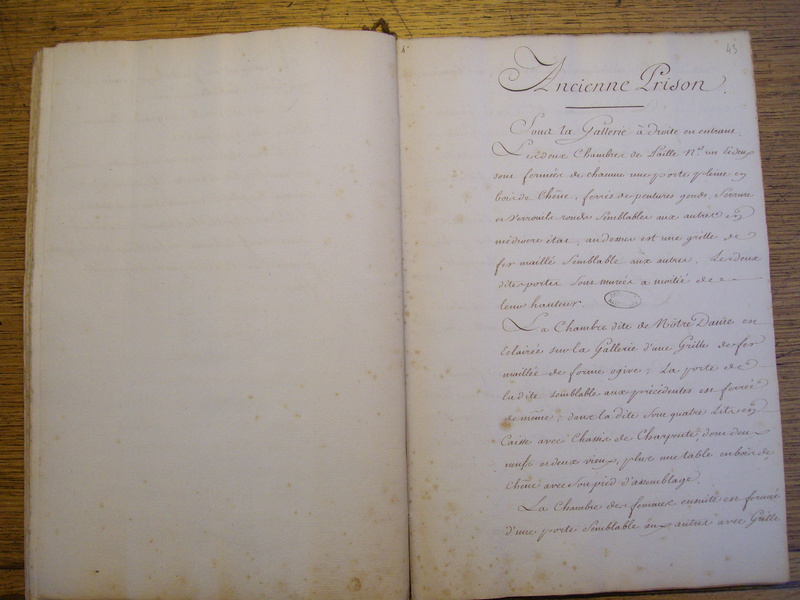 43
Ancienne Prison
Sous la Gallerie à droite en entrant.
Les deux Chambres de Paille N.os un et deux
sont fermées de chacune une porte pleine en
bois de Chêne, ferrée de pentures gonds, Serrure
et Verrouils ronds Semblables aux autres en
médiocre état, au dessus est une grille de
fer maillé Semblable aux autres. Les deux
dites portes Sont murées a moitié de
leur hauteur.
La Chambre dite de Nôtre Dame est
Eclairée sur la Gallerie d'une Grille de fer
maillée de forme ogive; La porte de
ladite semblable aux précédentes est ferrée
de même; dans la dite Sont quatre Lits en
Caisse avec Chassis de Charpente, dont deux
neufs et deux vieux, plus une table en bois de
Chêne avec Son pied d'assemblage.
La Chambre des femmes ensuite est fermée
d'une porte Semblable aux autres avec Grille